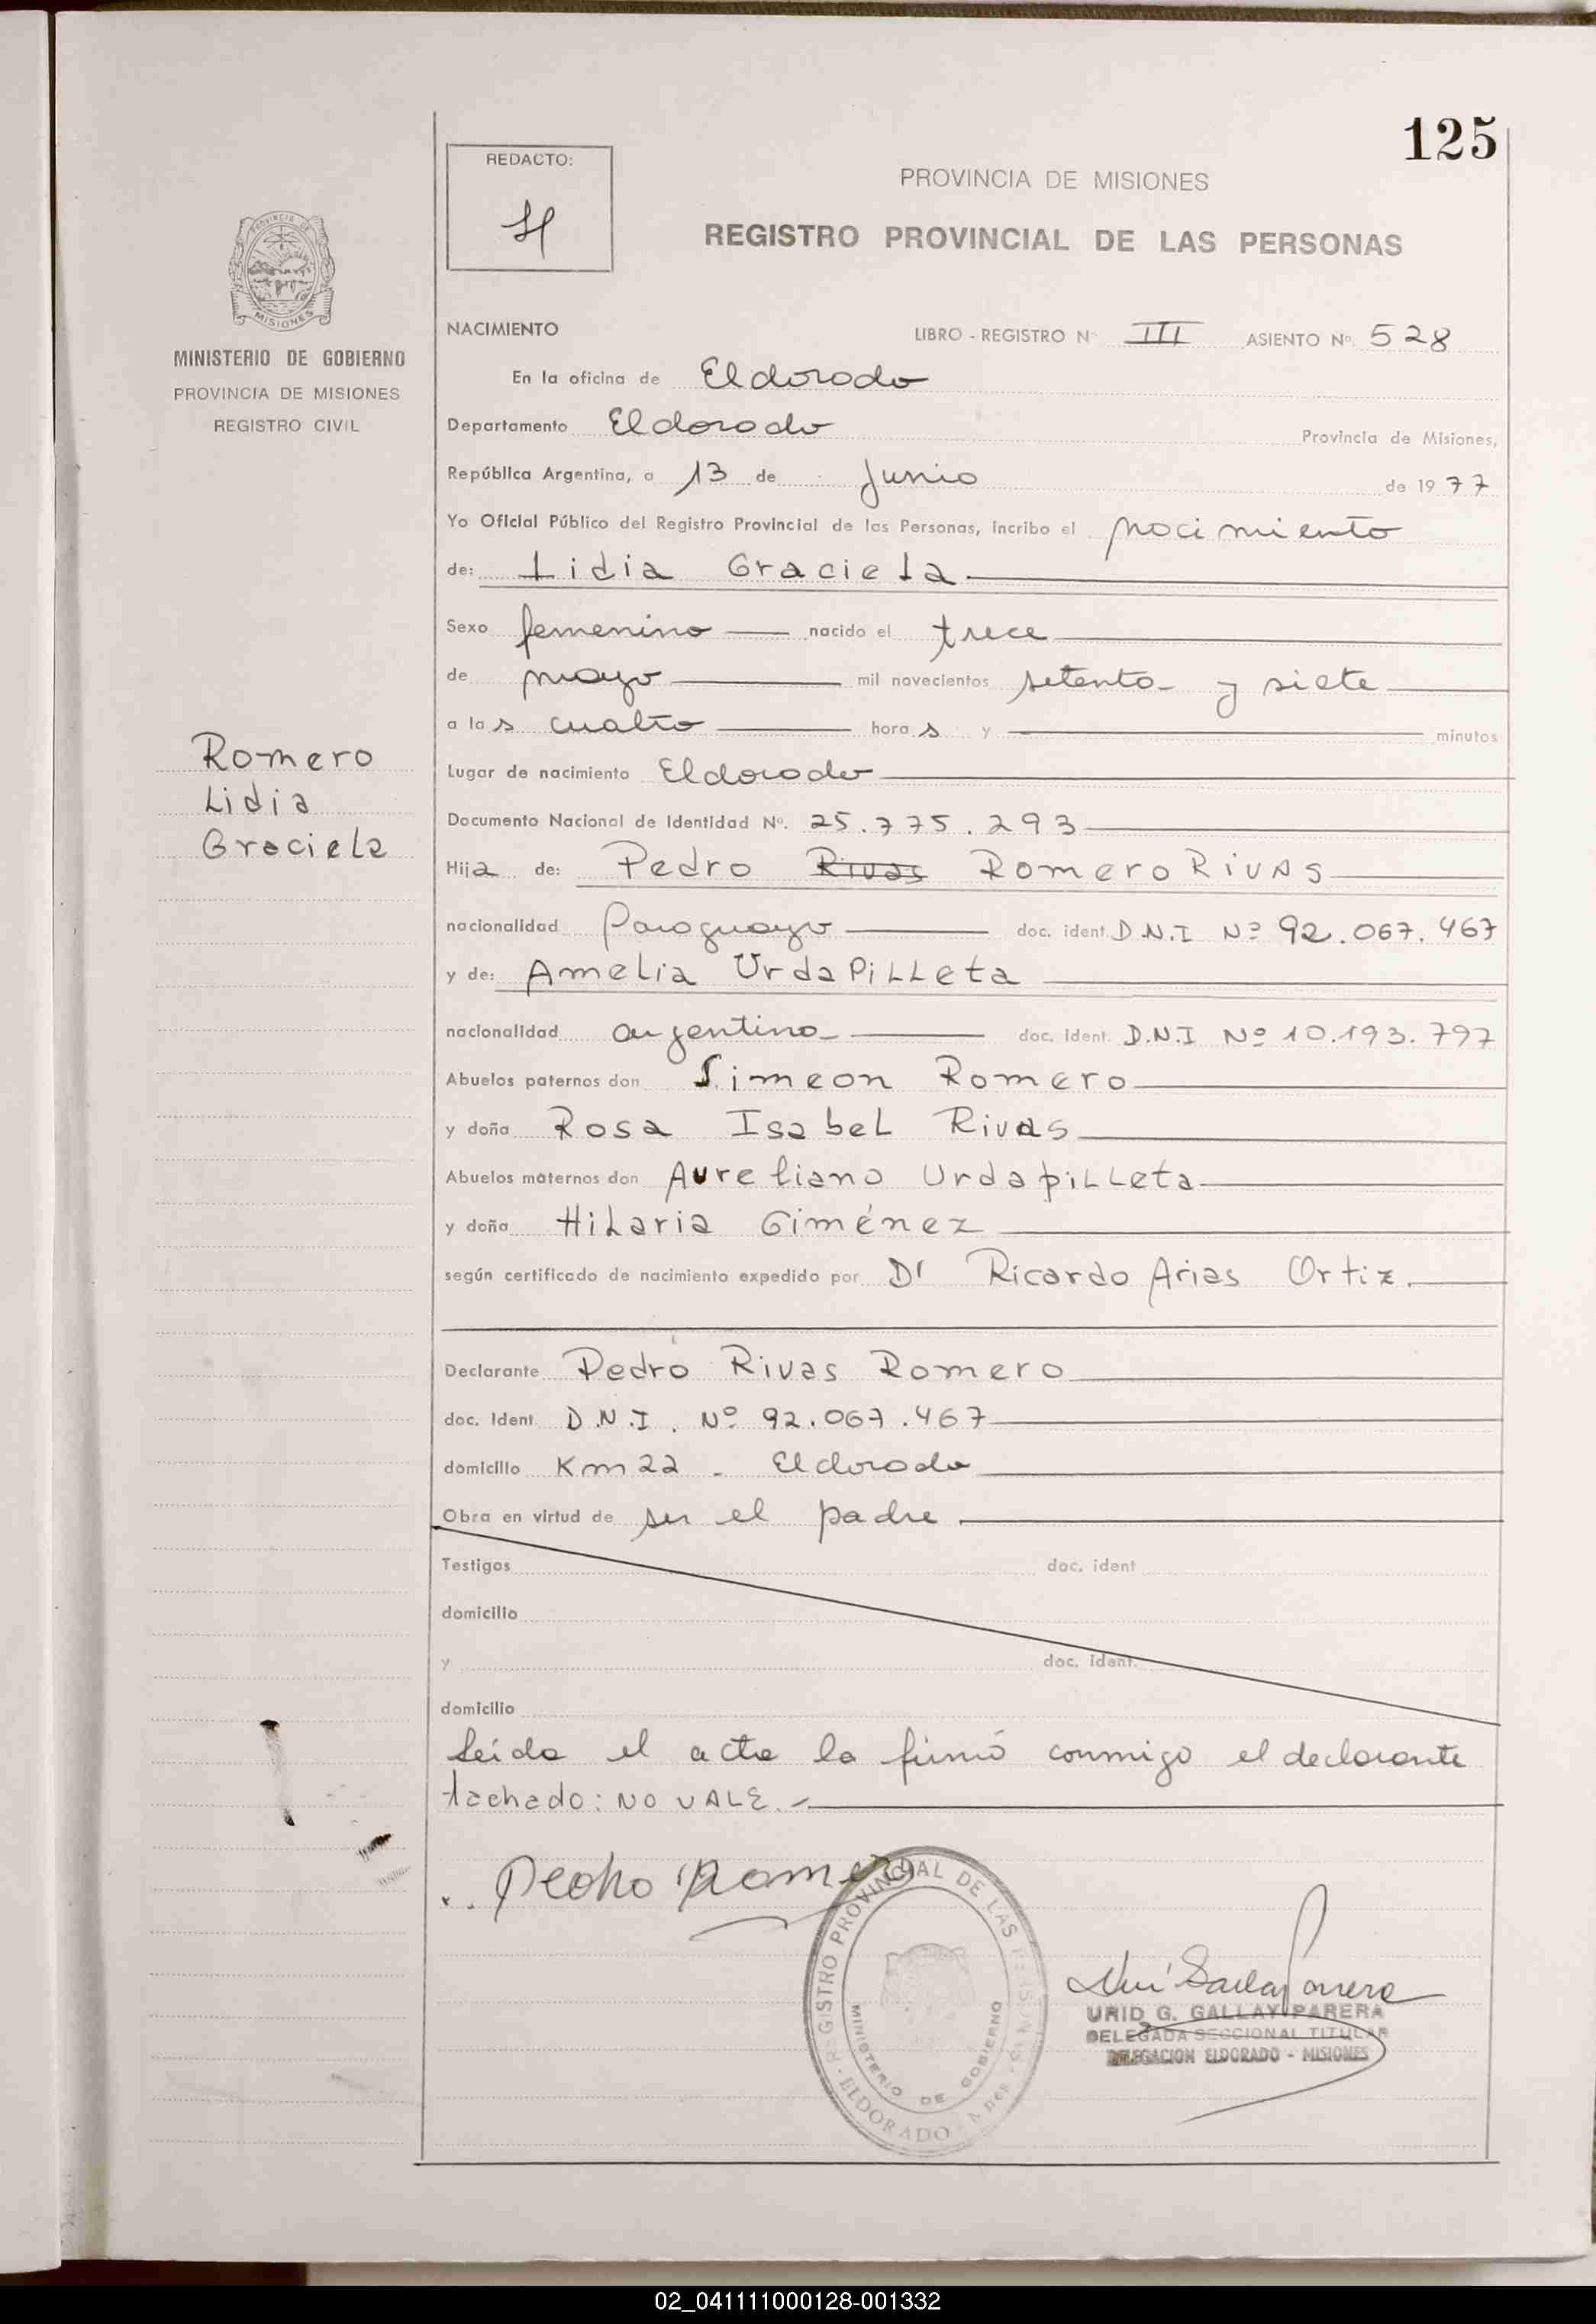 125
REDACTO:
PROVINCIA DE MISIONES
REGISTRO PROVINCIAL DE LAS PERSONAS
PROVINCIA DE
MISIONES
MINISTERIO DE GOBIERNO
PROVINCIA DE MISIONES
REGISTRO CIVIL
NACIMIENTO LIBRO - REGISTRO Nº III ASIENTO Nº. 528
En la oficina de Eldorado
Departamento Eldorado Provincia de Misiones,
República Argentina, a 13 de Junio de 1977
Yo Oficial Público del Registro Provincial de las Personas, incribo el nacimiento
de: Lidia Graciela
Sexo femenino nacido el trece
de mayo mil novecientos setenta y siete
a las cuatro horas y minutos
Romero
Lidia
Graciela
Lugar de nacimiento Eldorado
Documento Nacional de Identidad Nº. 25.775.293
Hija de: Pedro Rivas Romero Rivas
nacionalidad Paraguayo doc. ident. D.N.I Nº 92.067.467
y de: Amelia Urdapilleta
nacionalidad argentina doc. ident. D.N.I Nº 10.193.797
Abuelos paternos don Simeon Romero
y doña Rosa Isabel Rivas
Abuelos maternos don Aureliano Urdapilleta
y doña Hilaria Giménez
según certificado de nacimiento expedido por Dr Ricardo Arias Ortiz.
Declarante Pedro Rivas Romero
doc. Ident D.N.I. Nº 92.067.467
domicilio Km 22 - Eldorado
Obra en virtud de ser el padre.
Testigos doc. ident
domicilio
y doc. ident.
domicilio
Leída el acta la firmó conmigo el declarante
tachado: NO VALE.-
Pedro Romero
REGISTRO PROVINCIAL DE LAS PERSONAS
MINISTERIO DE GOBIERNO
ELDORADO
URID G. GALLAY PARERA
DELEGADA SECCIONAL TITULAR
DELEGACION ELDORADO - MISIONES
02_041111000128-001332